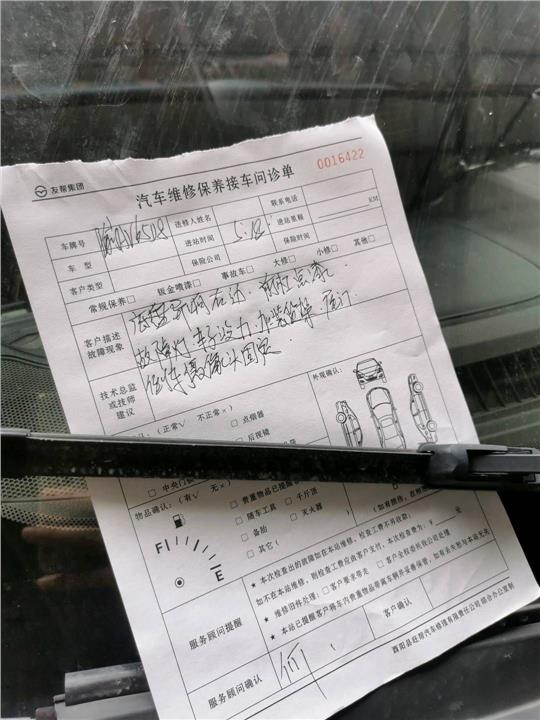 友帮集团
汽车维修保养接车问诊单
0016422
车牌号 送修人姓名 联系电话
车 型 进站时间 5.18 进站里程 KM
客户类型 保险公司 保险时间
常规保养□ 钣金喷漆□ 事故车□ 大修□ 小修□ 其他□
客户描述
故障现象
底盘异响右边.前
故障灯 车子没力.加装货架.后门
技术总监
或技师
建议
外观确认:
(正常√ 不正常×)
□ 点烟器
□ 后视镜
□ 中央门锁
物品确认:(有√ 无×)
□ 贵重物品已提醒
□ 随车工具 □ 千斤顶
□ 备胎 □ 灭火器
□ 其它(
F E
服务顾问提醒
★ 本次检查出的故障如在本站维修,则检查工费不再收取;
如不在本站维修,则检查工费应由客户支付,本次检查费为:¥ 元
★ 维修旧件处理:□ 客户要求带走 □ 客户全权委托我公司处理
★ 本站已提醒客户将车内贵重物品带离车辆并妥善保管,如有丢失恕与本站无关
服务顾问确认 何 客户确认
酉阳县旺帮汽车修理有限责任公司 综合办公室制